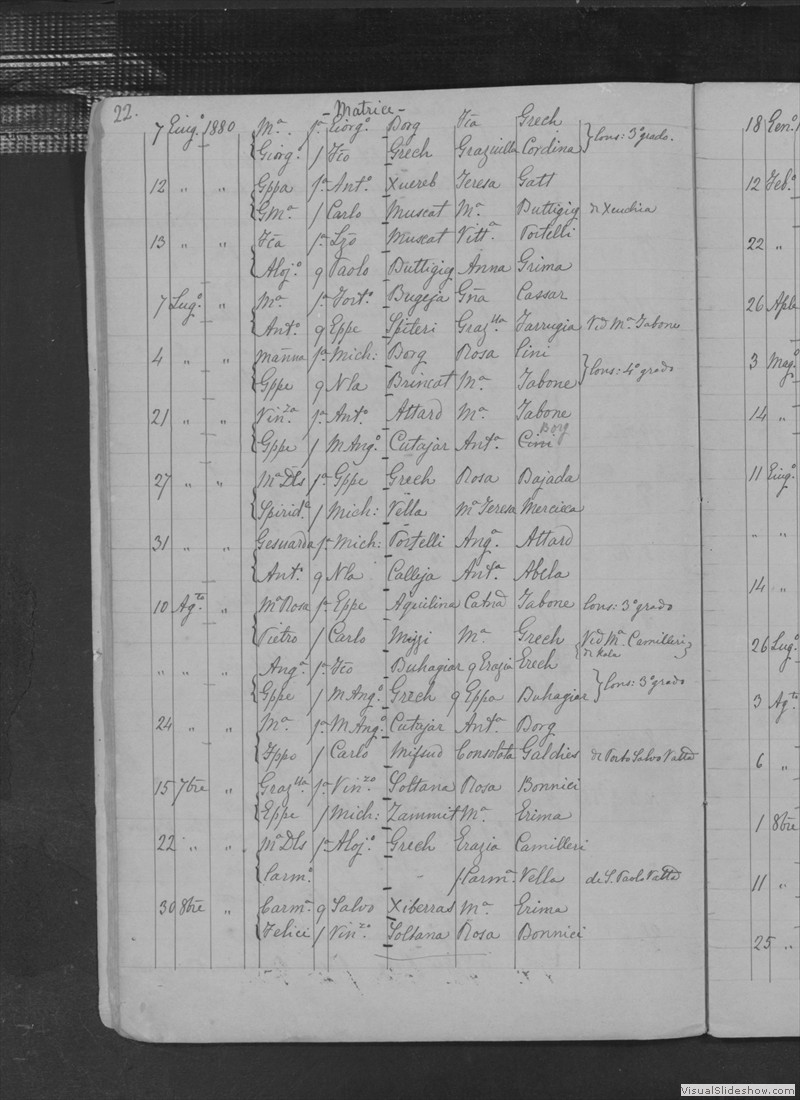 22.
- Matrice -
7 Giug.º 1880 Mª fª Giorg.º Borg Fca Grech
Giorg.º f Fco Grech Graziulla Cordina } Cons: 3º grado.
12 " " Gppa fª Ant.º Xuereb Teresa Gatt
GMª f Carlo Muscat Mª Buttigig di Xeuchia
13 " " Fca fª Lzo Muscat Vittª Portelli
Aloj.º q Paolo Buttigig Anna Grima
7 Lug.º " Mª fª Fort.º Bugeja Gña Cassar
Ant.º q Gppe Spiteri Grazlla Farrugia Vid Mª Tabone
4 " " Mañna fª Mich: Borg Rosa Cini
Gppe q Nla Brincat Mª Tabone } Cons: 4º grado
21 " " Vinza fª Ant.º Attard Mª Tabone
Gppe f MAng.º Cutajar Antª Cini Borg
27 " " Mª Dls fª Gppe Grech Rosa Bajada
Spirid.º f Mich: Vella Mª Teresa Mercieca
31 " " Gesuarda fª Mich: Portelli Angª Attard
Ant.º q Nla Calleja Antª Abela
10 Agto " Mª Rosa fª Gppe Aquilina Catna Tabone Cons: 3º grado
Pietro f Carlo Mizzi Mª Grech { Vid Mª Camilleri di Kala }
" " " Angª fª Fco Buhagiar q Grazia Grech
Gppe f MAng.º Grech q Gppa Buhagiar } Cons: 3º grado
24 " " Mª fª MAng.º Cutajar Antª Borg
Fppo f Carlo Mifsud Consolata Galdies di Porto Salvo Vallta
15 7bre " Grazlla fª Vinzo Soltana Rosa Bonnici
Gppe f Mich: Zammit Mª Grima
22 " " Mª Dls fª Aloj.º Grech Grazia Camilleri
Carm.º - f Carmª Vella di S. Paolo Vallta
30 8bre " Carmª q Salvo Xiberras Mª Grima
Felici f Vinzo Soltana Rosa Bonnici
18 Gen.º 1
12 Feb.º
22 "
26 Aple
3 Mag.º
14 "
11 Giug.º
" "
14 "
26 Lug.º
3 Agto
6 "
1 8bre
11 "
25 "
VisualSlideshow.com